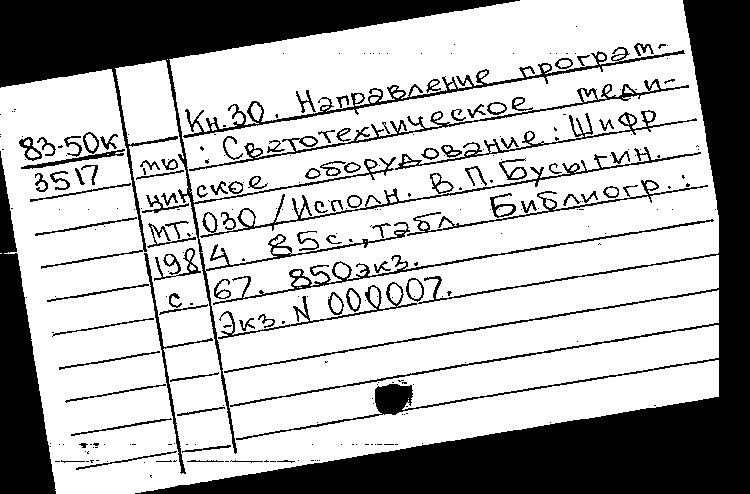 Кн.30. Направление програм-
83-50к
3517
мы: Светотехническое меди-
цинское оборудование: Шифр
МТ.030 /Исполн. В.П. Бусыгин.
1984. 85с., табл. Библиогр.:
с. 67. 850экз.
Экз. N 000007.